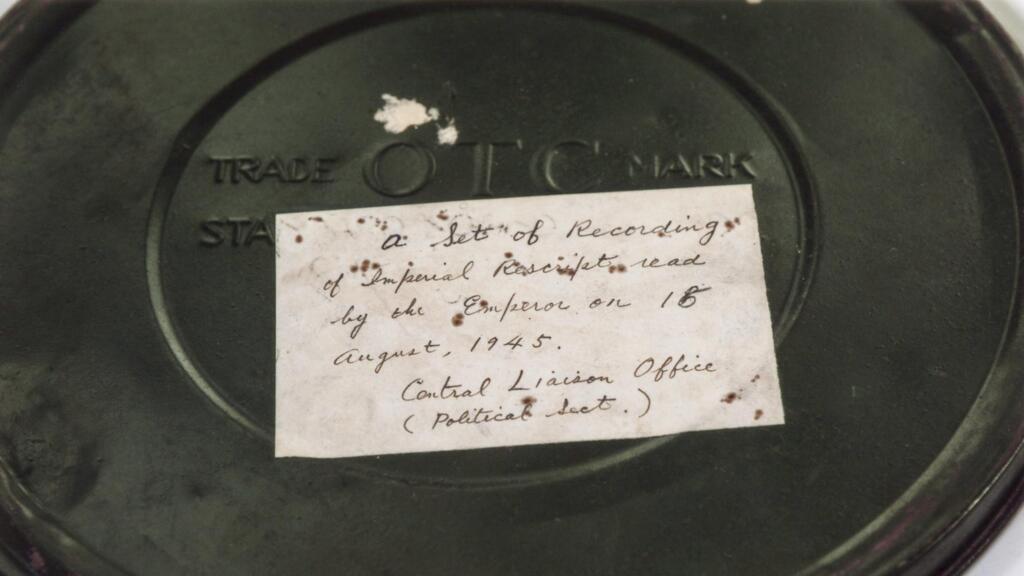 TRADE OTC MARK
STA
a Set of Recording
of Imperial Rescript read
by the Emperor on
August, 1945.
Central Liaison Office
(Political Sect.)